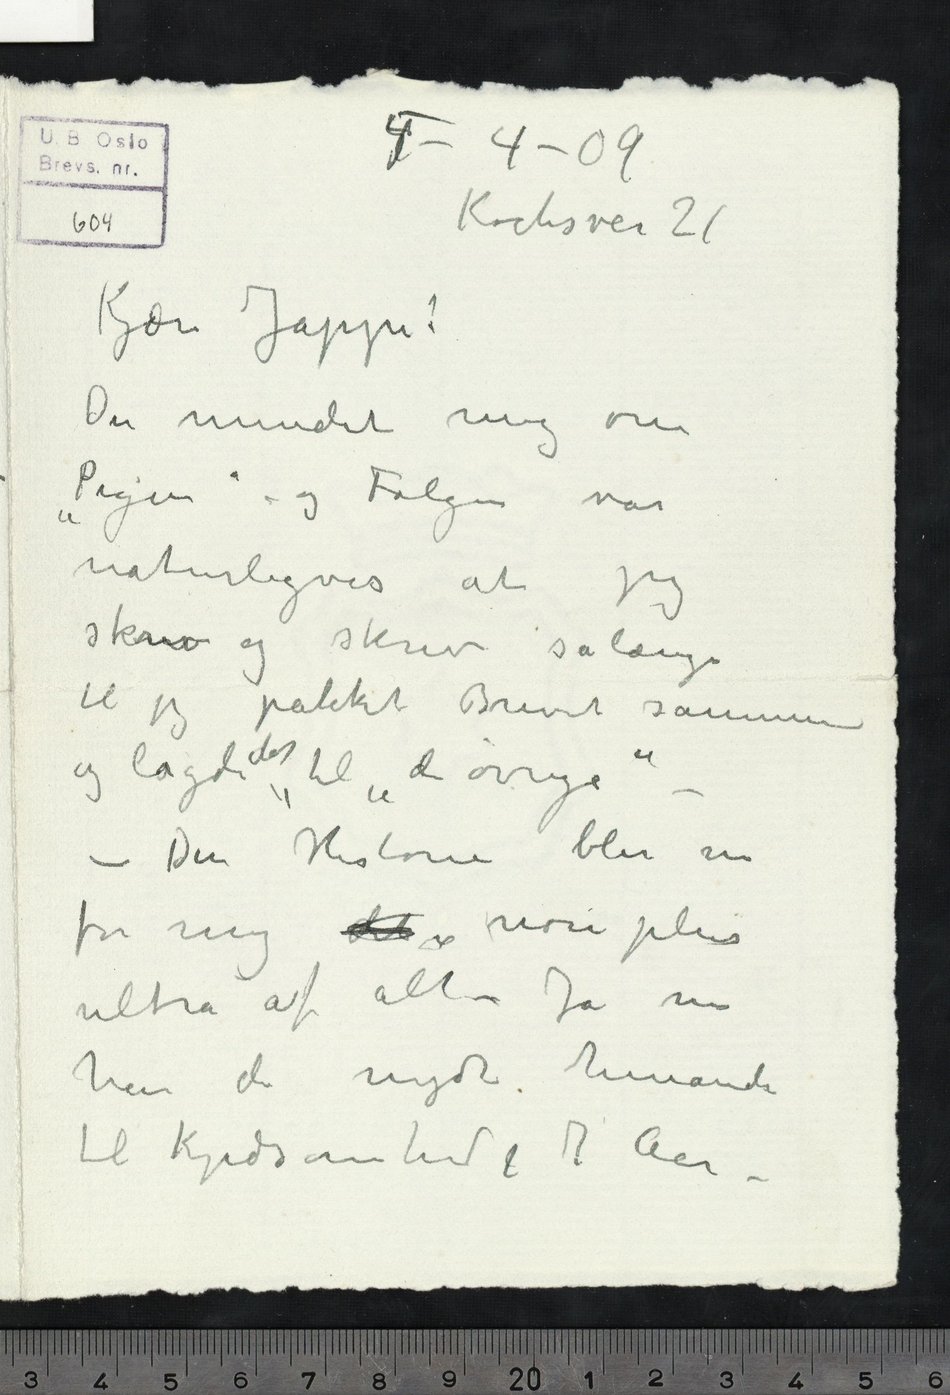 U. B. Oslo
Brevs. nr.
604
4 – 4 – 09
Kochsvei 21
Kjære Jappe!
Du mindet mig om
„Pigen“ – og Følgen var
naturligvis at jeg
skrev og skrev sålænge
til jeg pakket Brevet sammen
og lagde det til „de øvrige“ –
– Den Historie blir nu
for mig non plus
ultra af alt – Ja nu
har de nydt hinande
til Kjedsomhed i 7 Aar –
3 4 5 6 7 8 9 20 1 2 3 4 5 6